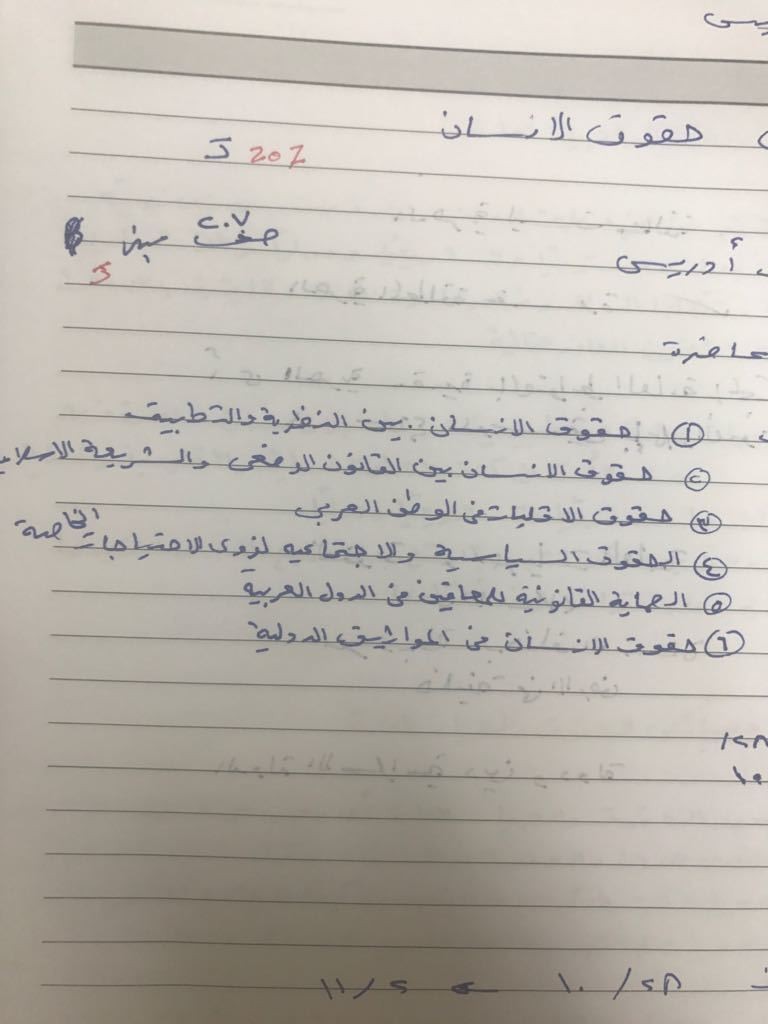 حقوق الانسان
207 J
صف ٢٠٧ مبنى
J
أدريسى
حاضرة
① حقوق الانسان بين النظرية والتطبيق
② حقوق الانسان بين القانون الوضعى والشريعة الاسلامي
③ حقوق الاقليات فى الوطن العربي
④ الحقوق السياسية والاجتماعيه لذوى الاحتياجات الخاصة
⑤ الحماية القانونية للمعاقين فى الدول العربيه
⑥ حقوق الانسان فى المواثيق الدولية
١٠/٢٨ ← ١١/٢